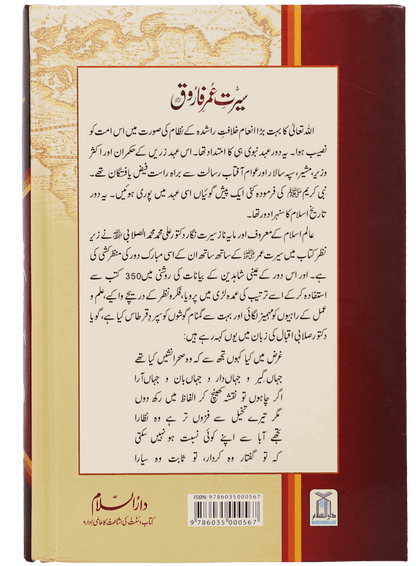 سیرتِ عمر فاروق
اللہ تعالیٰ کا بہت بڑا انعام خلافتِ راشدہ کے نظام کی صورت میں اس امت کو
نصیب ہوا۔ یہ دور عہدِ نبوی ہی کا امتداد تھا۔ اس عہدِ زریں کے حکمران اور اکثر
وزیر، مشیر، سپہ سالار اور عوام آفتابِ رسالت سے براہ راست فیض یافتگان تھے۔
نبی کریم ﷺ کی فرمودہ کئی ایک پیش گوئیاں اسی عہد میں پوری ہوئیں۔ یہ دور
تاریخِ اسلام کا سنہرا دور تھا۔
عالمِ اسلام کے معروف اور مایہ ناز سیرت نگار دکتور علی محمد محمد الصلابی نے زیرِ
نظر کتاب میں سیرت عمر کے ساتھ ساتھ ان کے اسی مبارک دور کی منظر کشی کی
ہے۔ اور اس دور کے عینی شاہدین کے بیانات کی روشنی میں 350 کتب سے
استفادہ کر کے اسے ترتیب کی عمدہ لڑی میں پرویا، فکر و نظر کے دریچے وا کیے، علم و
عمل کے راہیوں کو مہمیز لگائی اور بہت سے گمنام گوشوں کو سپردِ قرطاس کیا ہے، گویا
دکتور صلابی اقبال کی زبان میں یوں کہہ رہے ہیں:
غرض میں کیا کہوں تجھ سے کہ وہ صحرا نشیں کیا تھے
جہاں گیر و جہاں دار و جہاں بان و جہاں آرا
اگر چاہوں تو نقشہ کھینچ کر الفاظ میں رکھ دوں
مگر تیرے تخیل سے فزوں تر ہے وہ نظارا
تجھے آبا سے اپنے کوئی نسبت ہو نہیں سکتی
کہ تو گفتار وہ کردار، تو ثابت وہ سیارا
دارالسلام
کتاب و سنت کی اشاعت کا عالمی ادارہ
ISBN: 9786035000567
9 786035 000567
دارالسلام
DARUSSALAM